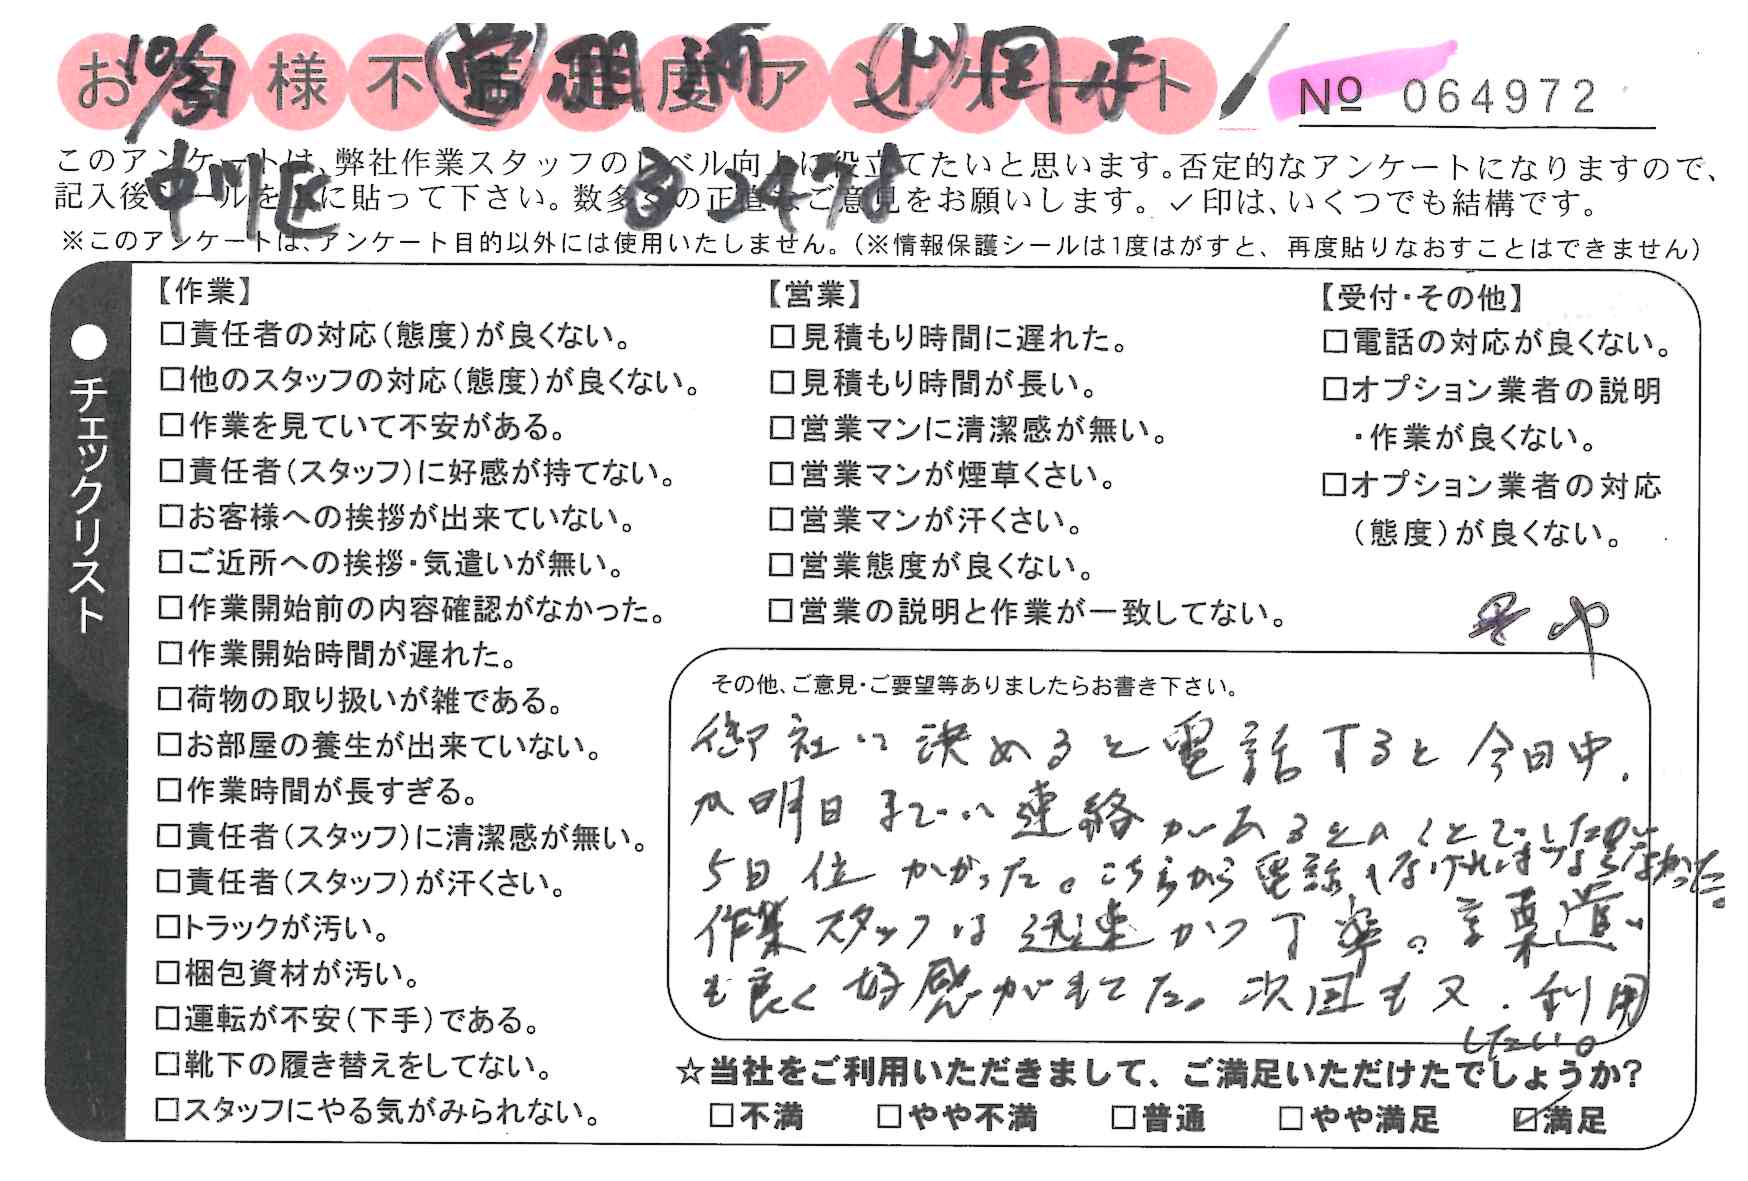 お客様不満足度アンケート
№ 064972
中川区
このアンケートは、弊社作業スタッフのレベル向上に役立てたいと思います。否定的なアンケートになりますので、
記入後シールを上に貼って下さい。数多くの正直なご意見をお願いします。✓印は、いくつでも結構です。
※このアンケートは、アンケート目的以外には使用いたしません。(※情報保護シールは1度はがすと、再度貼りなおすことはできません)
●チェックリスト
【作業】
□責任者の対応(態度)が良くない。
□他のスタッフの対応(態度)が良くない。
□作業を見ていて不安がある。
□責任者(スタッフ)に好感が持てない。
□お客様への挨拶が出来ていない。
□ご近所への挨拶・気遣いが無い。
□作業開始前の内容確認がなかった。
□作業開始時間が遅れた。
□荷物の取り扱いが雑である。
□お部屋の養生が出来ていない。
□作業時間が長すぎる。
□責任者(スタッフ)に清潔感が無い。
□責任者(スタッフ)が汗くさい。
□トラックが汚い。
□梱包資材が汚い。
□運転が不安(下手)である。
□靴下の履き替えをしてない。
□スタッフにやる気がみられない。
【営業】
□見積もり時間に遅れた。
□見積もり時間が長い。
□営業マンに清潔感が無い。
□営業マンが煙草くさい。
□営業マンが汗くさい。
□営業態度が良くない。
□営業の説明と作業が一致してない。
【受付・その他】
□電話の対応が良くない。
□オプション業者の説明
・作業が良くない。
□オプション業者の対応
(態度)が良くない。
その他、ご意見・ご要望等ありましたらお書き下さい。
御社に決めると電話すると今日中.
か明日までに連絡があるとのことでしたが
5日位かかった。こちらから電話しなければならなかった。
作業スタッフは迅速かつ丁寧。言葉遣い
も良く好感がもてた。次回も又、利用
したい。
☆当社をご利用いただきまして、ご満足いただけたでしょうか?
□不満 □やや不満 □普通 □やや満足 ☑満足